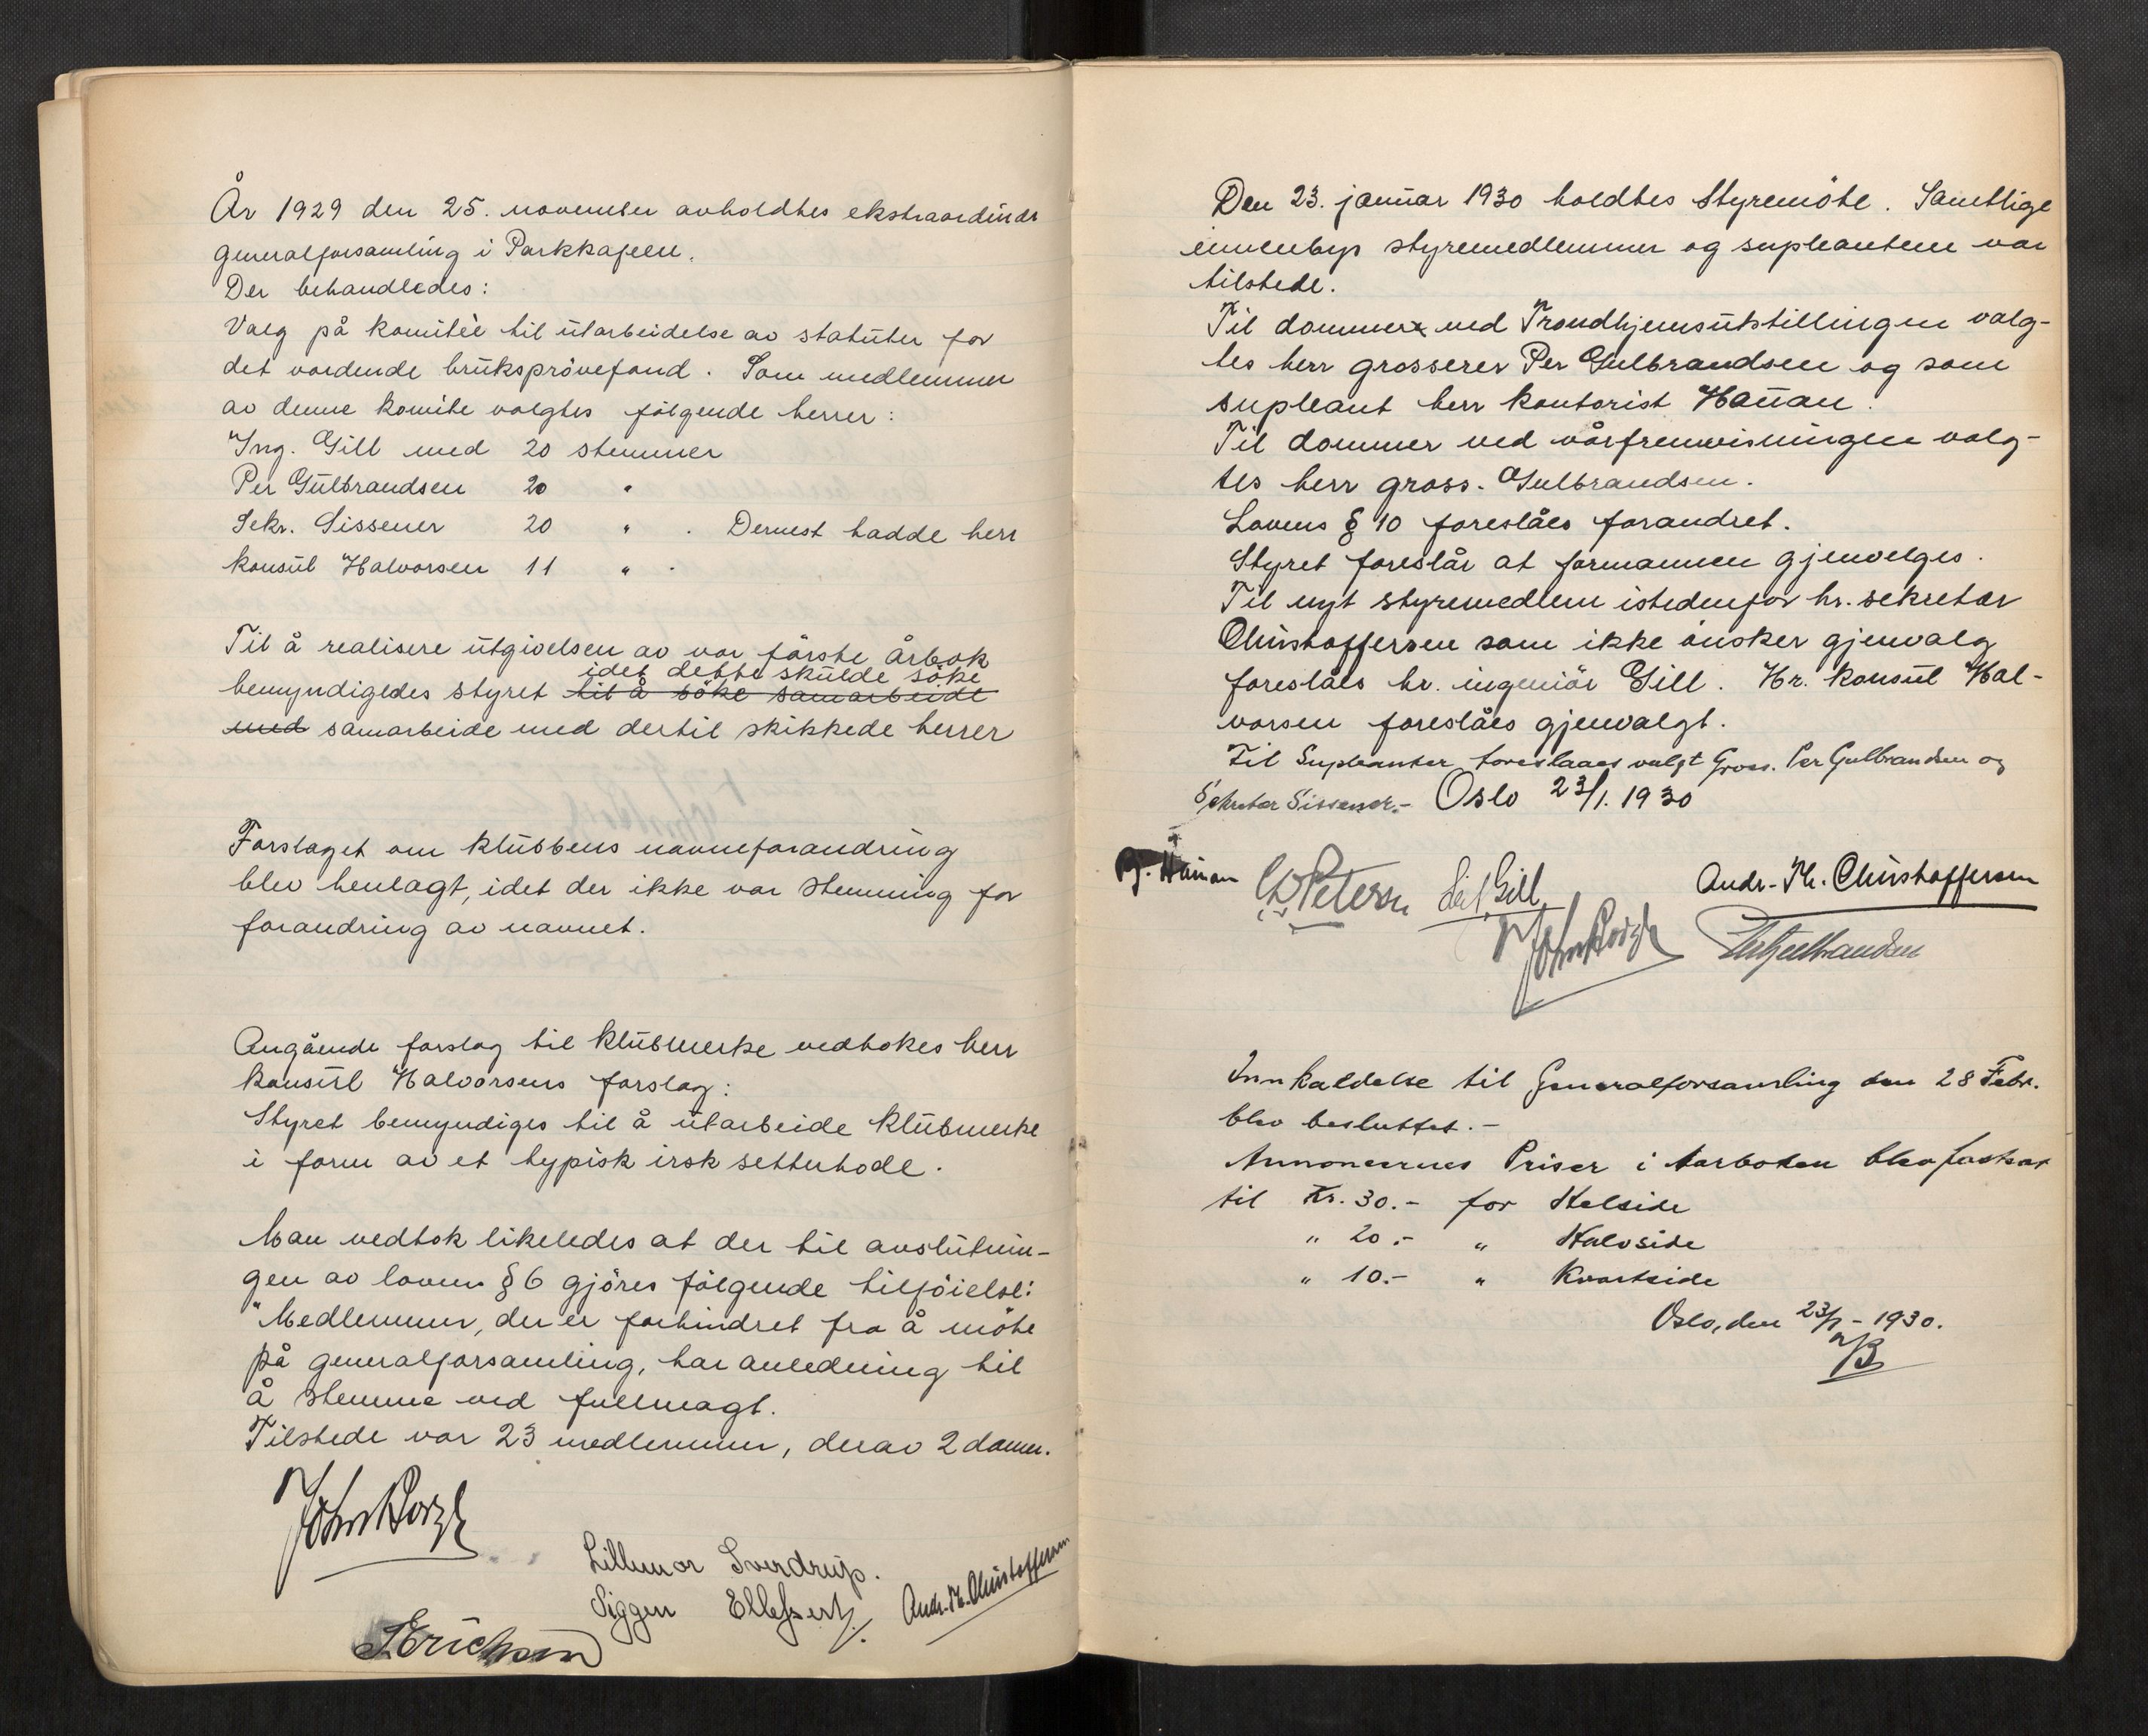 År 1929 den 25. november avholdtes ekstraordinær
generalforsamling i Parkkafeen.
Der behandledes:
Valg på komitèe til utarbeidelse av statuter for
det vordende bruksprövefond. Som medlemmer
av denne komite valgtes fölgende herrer:
Ing. Gill med 20 stemmer
Per Gulbrandsen 20 "
Sekr. Sissener 20 " . Dernest hadde herr
konsul Halvorsen 11 " .
Til å realisere utgivelsen av vor förste årbok
idet dette skulde söke
bemyndigedes styret til å söke samarbeide
med samarbeide med dertil skikkede herrer
Forslaget om klubbens navneforandring
blev henlagt, idet der ikke var stemning for
forandring av navnet.
Angående forslag til klubmerke vedtokes herr
konsul Halvorsens forslag:
Styret bemyndiges til å utarbeide klubmerke
i form av et typisk irsk setterhode.
Man vedtok likeledes at der til avslutnin-
gen av lovens § 6 gjöres fölgende tilföielse:
"Medlemmer, der er forhindret fra å möte
på generalforsamling, har anledning til
å stemme ved fullmagt.
Tilstede var 23 medlemmer, derav 2 damer.
Lillemor Sverdrup.
Siggen
Andr. Th. Christoffersen
Erichsen
Den 23. januar 1930 holdtes Styremöte. Samtlige
innenbys styremedlemmer og supleantene var
tilstede.
Til dommer ved Trondhjemsutstillingen valg-
tes herr grosserer Per Gulbrandsen og som
supleant herr kontorist Hauan.
Til dommer ved vårfremvisningen valg-
tes herr gross. Gulbrandsen.
Lovens § 10 foreslåes forandret.
Styret foreslår at formannen gjenvelges.
Til nyt styremedlem istedenfor hr. sekretær
Christoffersen som ikke önsker gjenvalg
foreslåes hr. ingeniör Gill. Hr. konsul Hal-
vorsen foreslåes gjenvalgt.
Til Supleanter foreslaaes valgt Gross. Per Gulbrandsen og
Sekretær Sissener.- Oslo 23/1. 1930
Hauan Petersen Leif Gill Andr. Th. Christoffersen
Per Gulbrandsen
Innkaldelse til Generalforsamling den 28 Febr.
blev besluttet.-
Annoncernes Priser i Aarboken blev fastsat
til Kr. 30.- for Helside
" 20.- " Halvside
" 10.- " Kvartside
Oslo, den 23/1-1930.